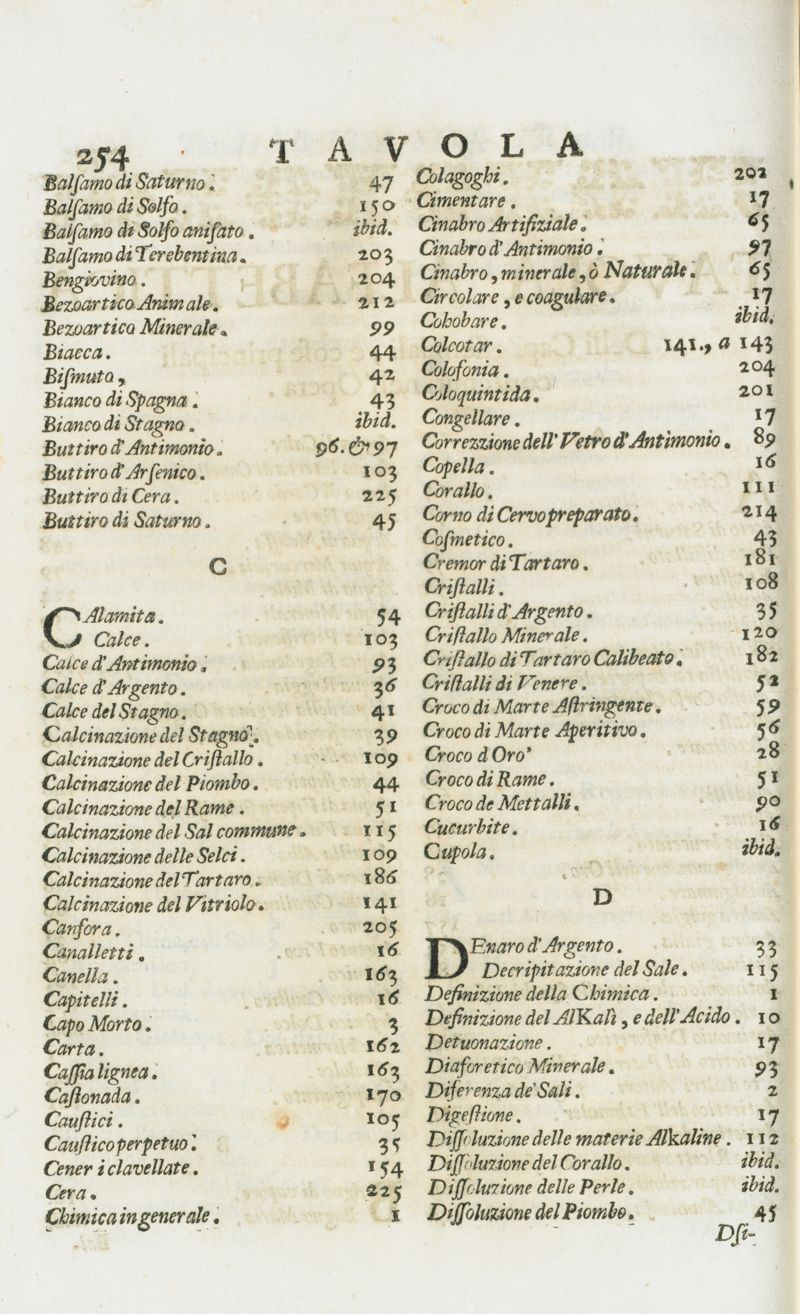 254 TAVOLA
Balſamo di Saturno. 47
Balſamo di Solfo. 150
Balſamo di Solfo aniſato. ibid.
Balſamo di Terebentina. 203
Bengiovino. 204
Bezoartico Animale. 212
Bezoartico Minerale. 99
Biacca. 44
Biſmuto, 42
Bianco di Spagna. 43
Bianco di Stagno. ibid.
Buttiro d'Antimonio. 96.&97
Buttiro d'Arſenico. 103
Buttiro di Cera. 225
Buttiro di Saturno. 45
C
CAlamita. 54
Calce. 103
Calce d'Antimonio. 93
Calce d'Argento. 36
Calce del Stagno. 41
Calcinazione del Stagno. 39
Calcinazione del Criſtallo. 109
Calcinazione del Piombo. 44
Calcinazione del Rame. 51
Calcinazione del Sal commune. 115
Calcinazione delle Selci. 109
Calcinazione del Tartaro. 186
Calcinazione del Vitriolo. 141
Canfora. 205
Canalletti. 16
Canella. 163
Capitelli. 16
Capo Morto. 3
Carta. 162
Caſſia lignea. 163
Caſtonada. 170
Cauſtici. 105
Cauſtico perpetuo. 35
Ceneri clavellate. 154
Cera. 225
Chimica in generale. 1
Colagoghi. 202
Cimentare. 17
Cinabro Artifiziale. 65
Cinabro d'Antimonio. 97
Cinabro, minerale, ò Naturale. 65
Circolare, e coagulare. 17
Cohobare. ibid.
Colcotar. 141., a 143
Colofonia. 204
Coloquintida. 201
Congellare. 17
Correzzione dell'Vetro d'Antimonio. 89
Copella. 16
Corallo. 111
Corno di Cervo preparato. 214
Coſmetico. 43
Cremor di Tartaro. 181
Criſtalli. 108
Criſtalli d'Argento. 35
Criſtallo Minerale. 120
Criſtallo di Tartaro Calibeato. 182
Criſtalli di Venere. 52
Croco di Marte Aſtringente. 59
Croco di Marte Aperitivo. 56
Croco d Oro' 28
Croco di Rame. 51
Croco de Mettalli. 90
Cucurbite. 16
Cupola. ibid.
D
DEnaro d'Argento. 33
Decripitazione del Sale. 115
Definizione della Chimica. 1
Definizione del AlKalì, e dell'Acido. 10
Detuonazione. 17
Diaforetico Minerale. 93
Diferenza de' Sali. 2
Digeſtione. 17
Diſſoluzione delle materie Alkaline. 112
Diſſoluzione del Corallo. ibid.
Diſſoluzione delle Perle. ibid.
Diſſoluzione del Piombo. 45
Dſi-